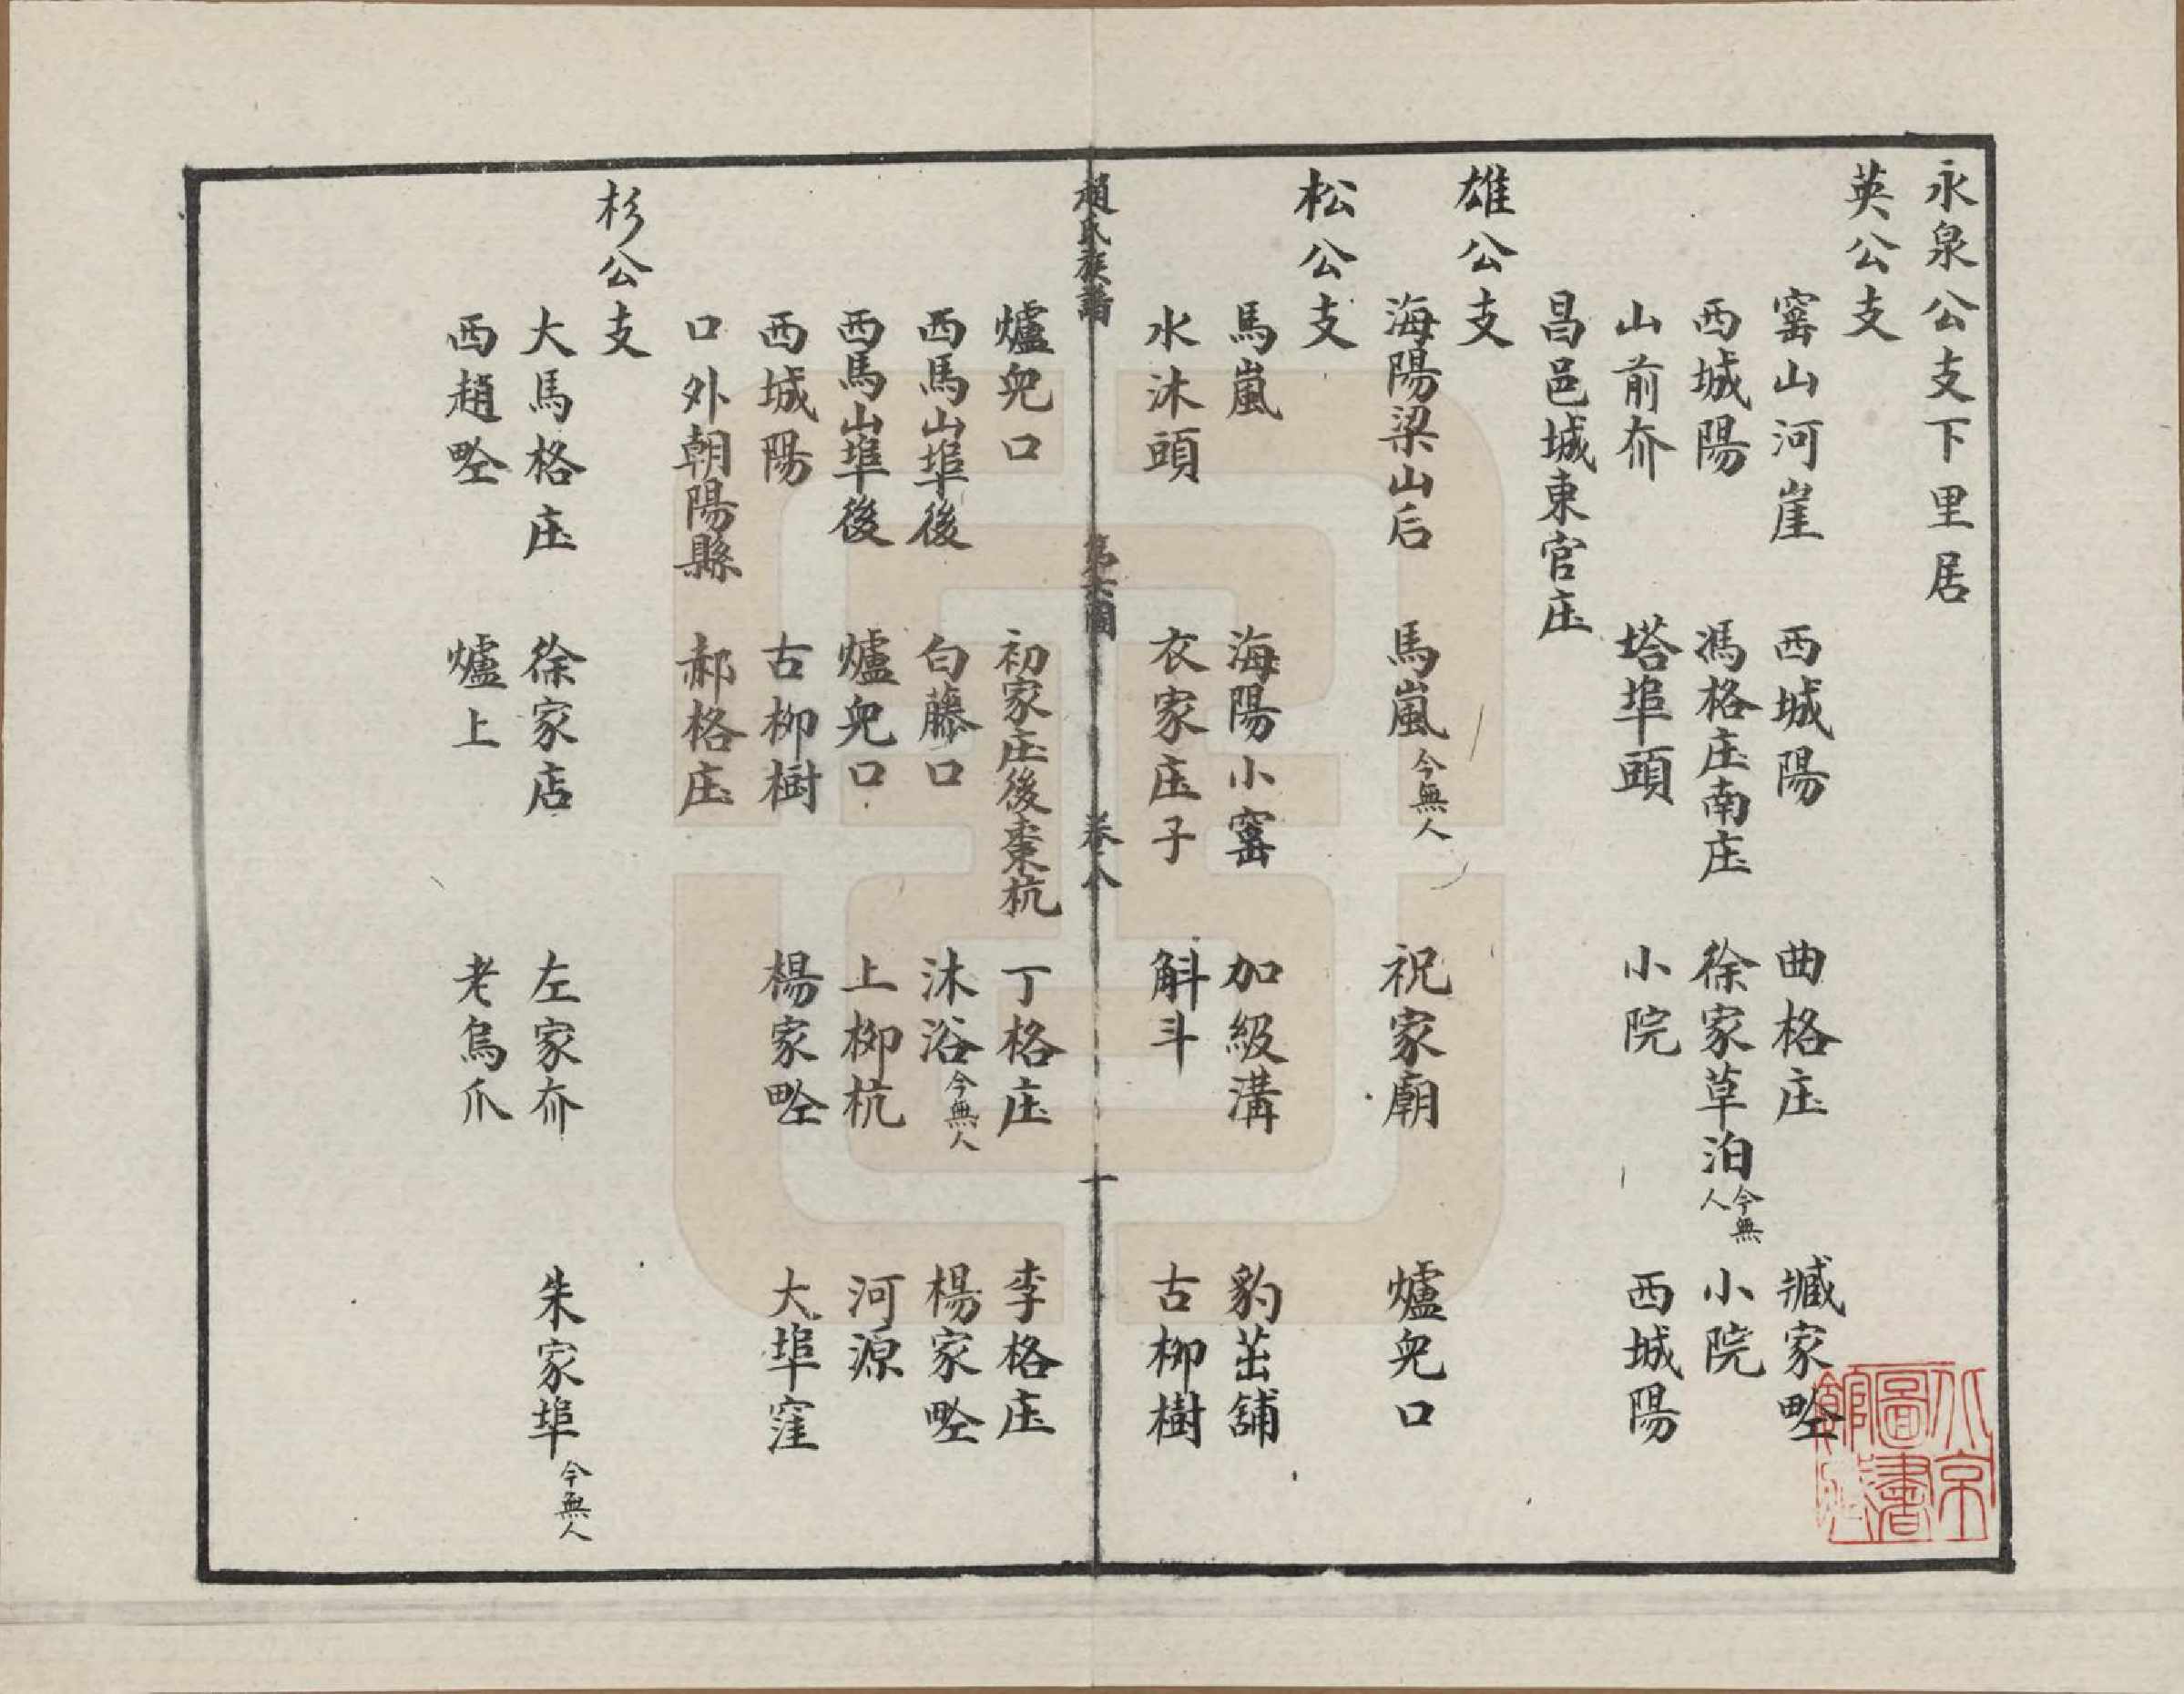 永泉公支下里居
英公支
窰山河崖　西城陽　曲格庄　臧家㽏
西城陽　馮格庄南庄　徐家草泊今無人　小院
山前夼　塔埠頭　小院　西城陽
昌邑城東官庄
雄公支
海陽梁山后　馬嵐今無人　祝家廟　爐皃口
松公支
馬嵐　海陽小窰　加級溝　豹茁舖
水沐頭　衣家庄子　斛斗　古柳樹
趙氏族譜　卷八　一
爐皃口　初家庄後棗杭　丁格庄　李格庄
西馬山埠後　白藤口　沐浴今無人　楊家㽏
西馬山埠後　爐皃口　上柳杭　河源
西城陽　古柳樹　楊家㽏　大埠窪
口外朝陽縣　郝格庄
杉公支
大馬格庄　徐家店　左家夼　朱家埠今無人
西趙㽏　爐上　老鴰爪
北京圖書館藏